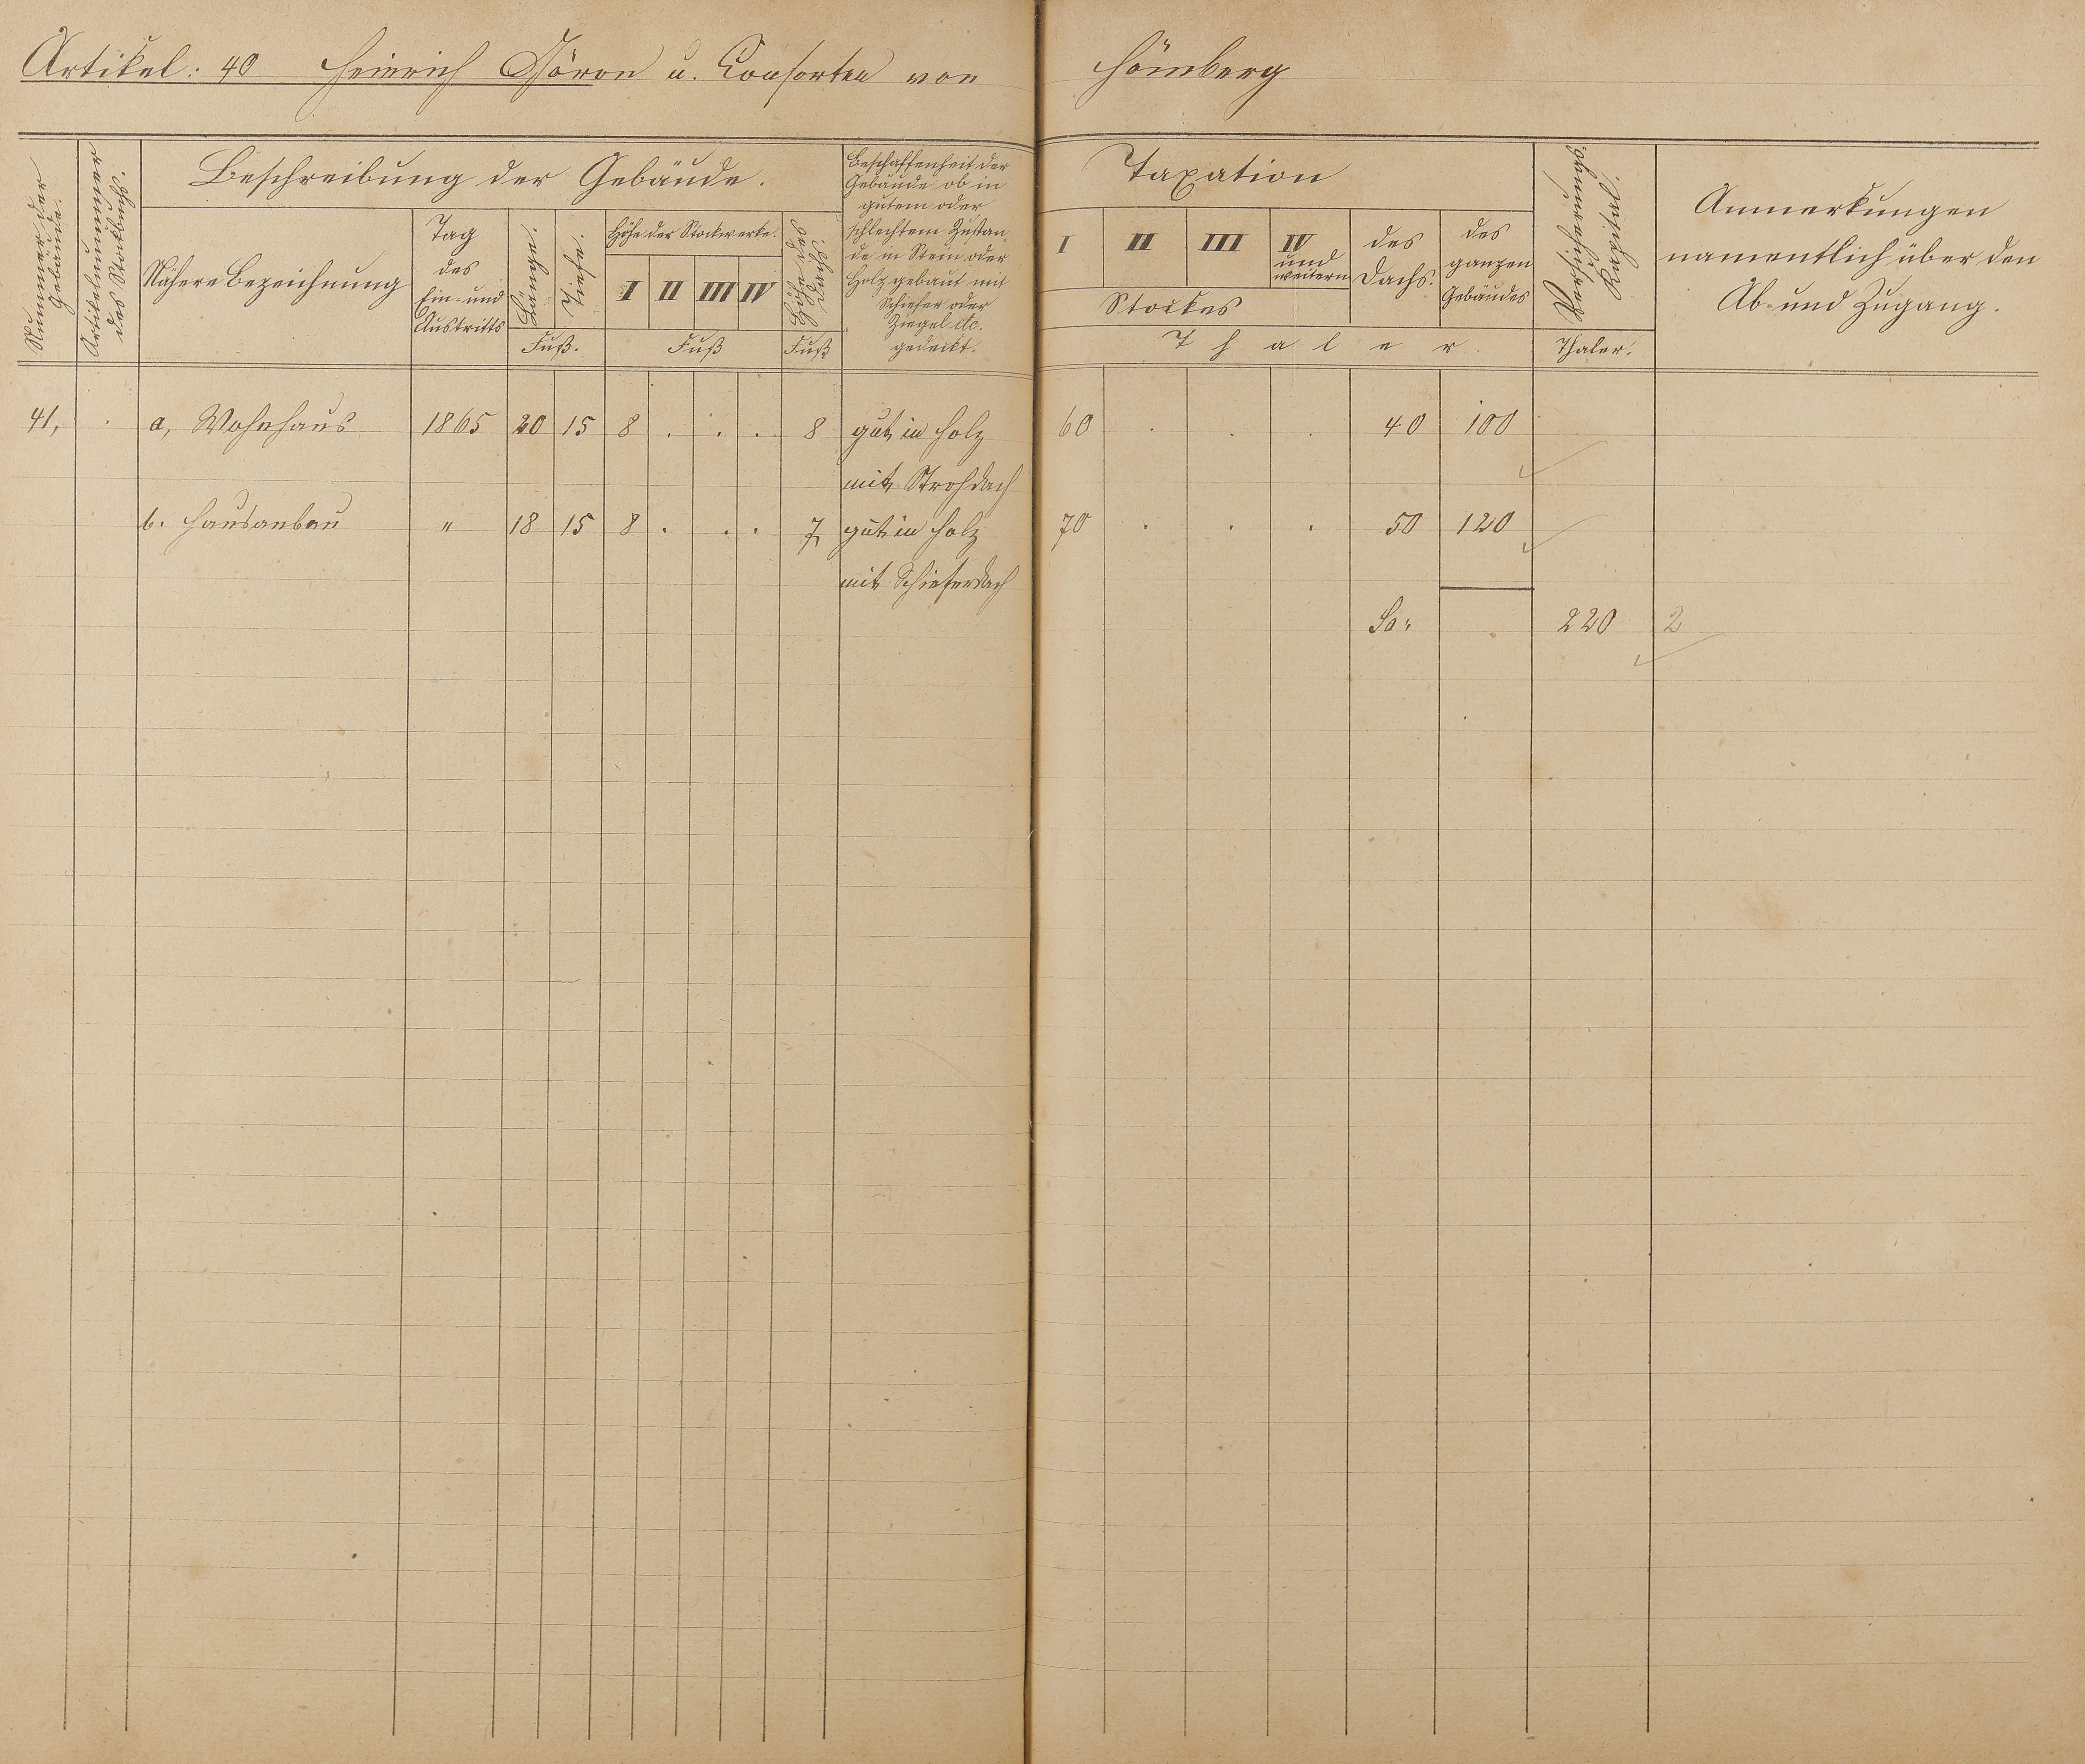 Artikel: 40 Heinrich Schöron u. Consorten von Hömberg
Nummer der Gebäude.
Artikelnummer des Stockbuchs.
Beschreibung der Gebäude.
Nähere Bezeichnung
Tag
des
Ein- und
Austritts
Länge.
Tiefe.
Fuß.
Höhe der Stockwerke.
I II III IV
Fuß
Höhe des Dachs.
Fuß
Beschaffenheit der
Gebäude ob in
gutem oder
schlechtem Zustan
de in Stein oder
Holz gebaut mit
Schiefer oder
Ziegel etc.
gedeckt.
Taxation
I II III IV
und
weitern
Stockes
des
Dachs.
des
ganzen
Gebäudes
Thaler.
Versicherungs-
Kapital.
Thaler.
Anmerkungen
namentlich über den
Ab- und Zugang.
41, . a, Wohnhaus 1865 20 15 8 . . . 8 gut in Holz 60 . . . 40 100
mit Strohdach
b. Hausanbau " 18 15 8 . . . 7 gut in Holz 70 . . . 50 120
mit Schieferdach
Sa: 220 2